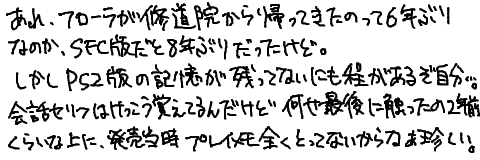 あれ、フローラが修道院から帰ってきたのって6年ぶり
なのか、SFC版だと8年ぶりだったけど。
しかしPS2版の記憶が残ってないにも程があるぞ自分…。
会話セリフはけっこう覚えてるんだけど何せ最後に触ったの2年前
くらいな上に、発売当時プレイメモ全くとってないからなぁ珍しく。